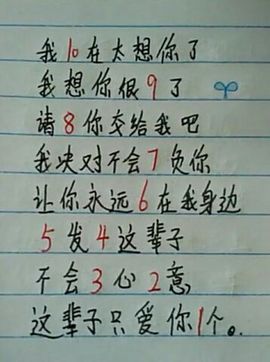 我10在太想你了
我想你很9了
请8你交给我吧
我决对不会7负你
让你永远6在我身边
5发4这辈子
不会3心2意,
这辈子只爱你1个。